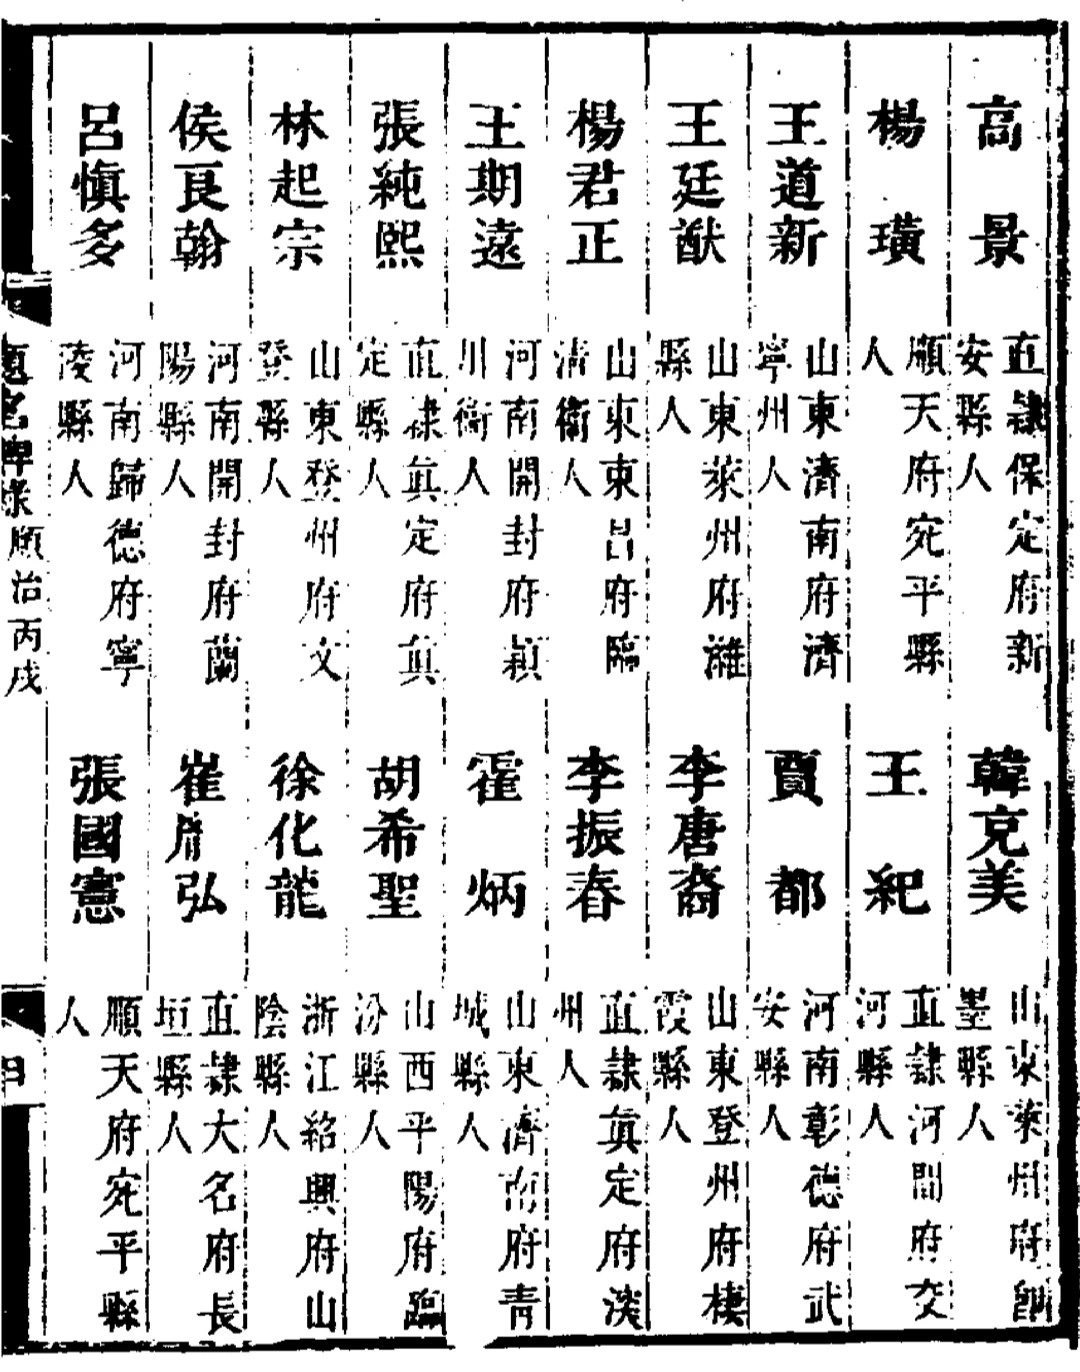 高景
直隸保定府新
安縣人
韓克美
山東萊州府卽
墨縣人
楊璜
順天府宛平縣
人
王紀
直隸河間府交
河縣人
王道新
山東濟南府濟
寧州人
賈都
河南彰德府武
安縣人
王廷猷
山東萊州府濰
縣人
李唐裔
山東登州府棲
霞縣人
楊君正
山東東昌府臨
清衛人
李振春
直隸眞定府深
州人
王期遠
河南開封府潁
川衛人
霍炳
山東濟南府青
城縣人
張純熙
直隸眞定府眞
定縣人
胡希聖
山西平陽府臨
汾縣人
林起宗
山東登州府文
登縣人
徐化龍
浙江紹興府山
陰縣人
侯良翰
河南開封府蘭
陽縣人
崔胤弘
直隸大名府長
垣縣人
呂愼多
河南歸德府寧
陵縣人
張國憲
順天府宛平縣
人
題名碑錄
順治丙戌